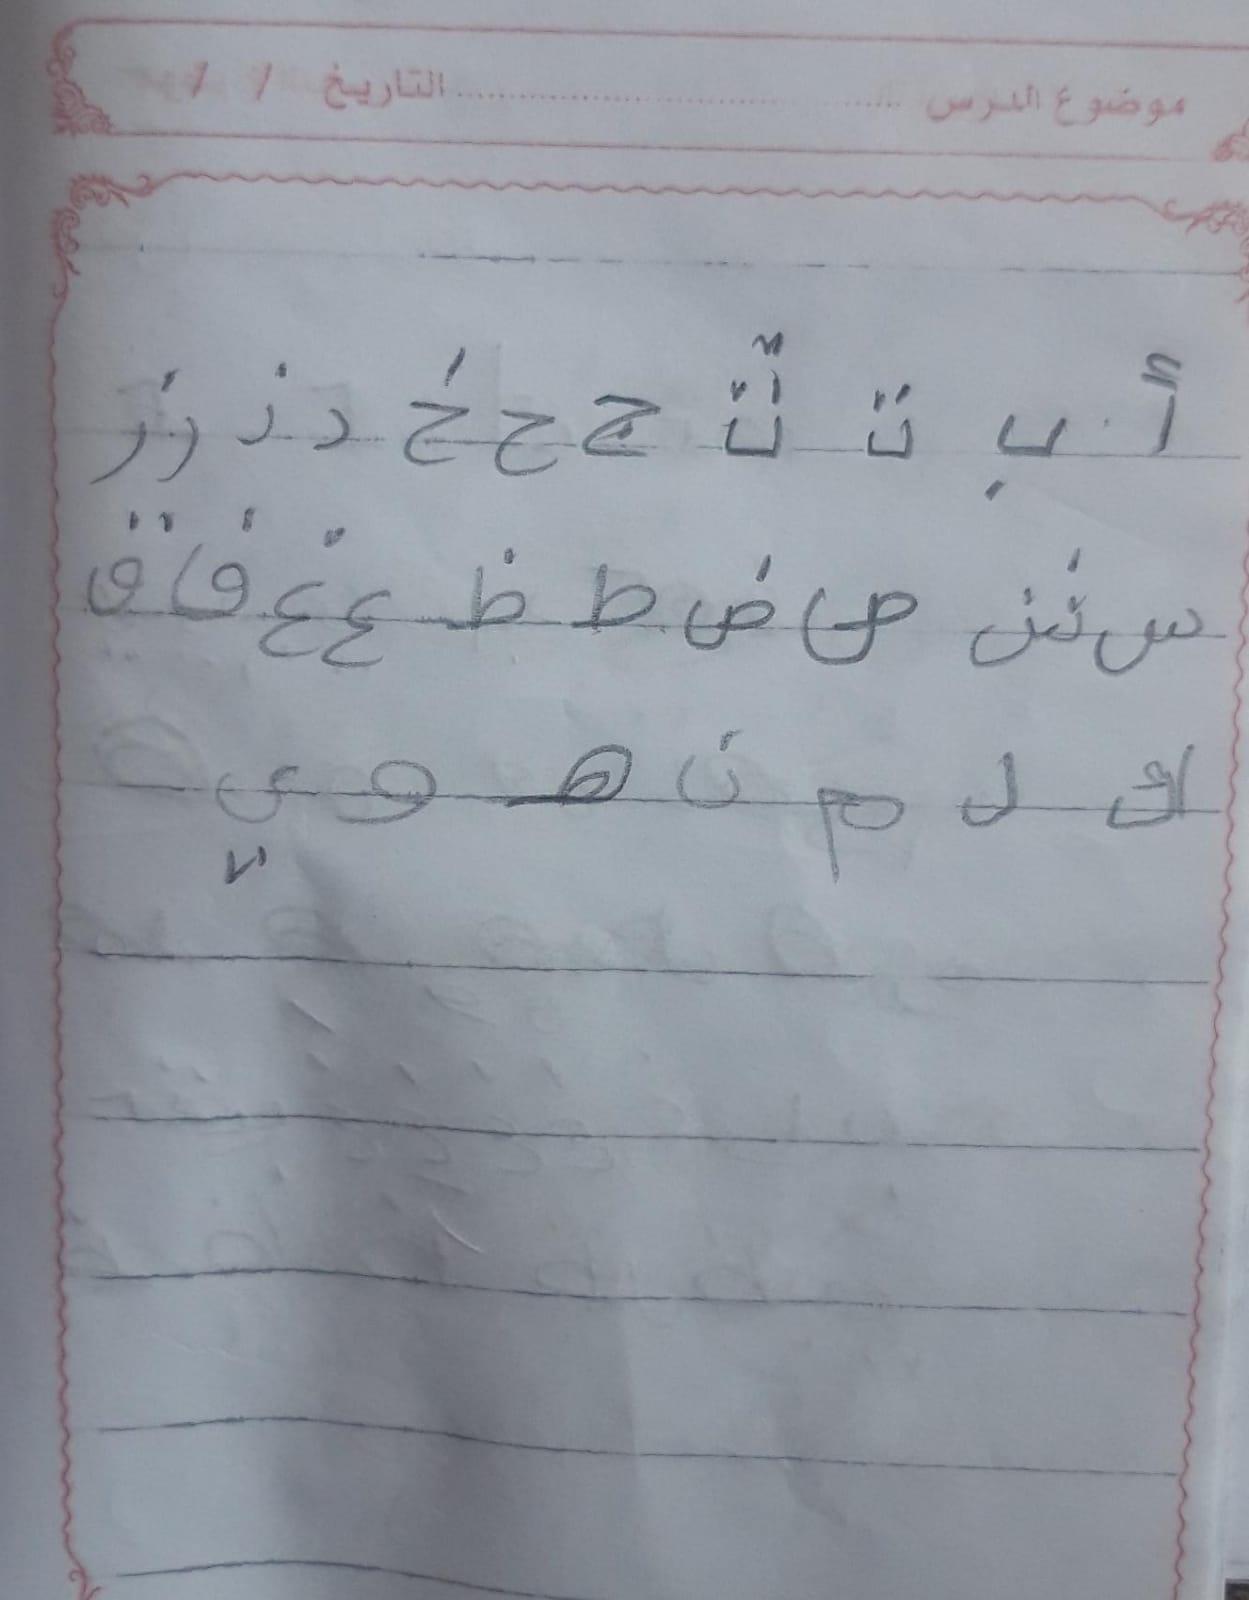 موضوع الدرس .......................... التاريخ / /
أ ب ت ث ج ح خ د ذ ر ز
س ش ص ض ط ظ ع غ ف ق
ك ل م ن هـ و ي